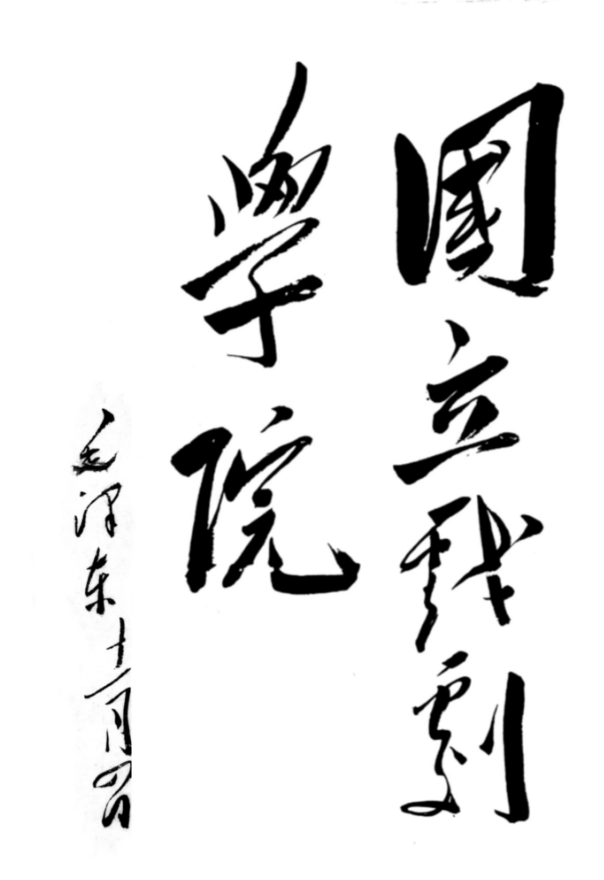 國立戏劇
學院
毛泽东 十一月四日